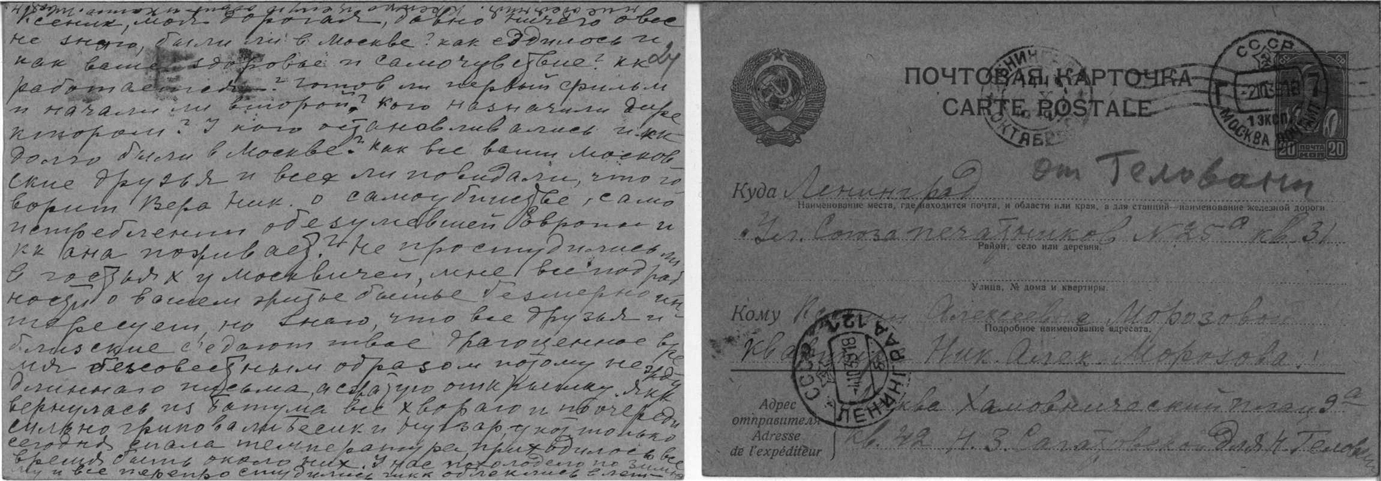 Ксения, моя дорогая, давно ничего о вас
не знаю, были ли в Москве? как ездилось и
как ваше здоровье и самочувствие? кк
24
работается? Готов ли первый фильм
и начали ли второй? кого назначили дире
ктором? У кого останавливались и кк
долго были в Москве? Как все ваши москов
ские друзья и всех ли повидали, что го
ворит Вера Ник. о самоубийстве, само
истреблении обезумевшей Европы и
кк она поживает? Не простудились ли
в гостях у москвичей, мне все подроб
ности о вашем житье бытье безмерно ин
тересует, но знаю, что все друзья и
близские съедают твое драгоценное вре
мя бессовестным образом потому не жду
длинного письма, а
вернулась из Батума все хвораю и по очереди
сильно гриповали и только
сегодня спала температура приходилось все
время быть около них. У нас похолодело по зимне
му и все перепростудились
ПОЧТОВАЯ КАРТОЧКА
CARTE POSTALE
ЛЕНИНГРАД
ОКТЯБРЬ
СССР
-2.10.39.18
1 ЭКСП.
МОСКВА
20 ПОЧТА КОП 20
от Геловани
Куда Ленинград
Наименование места, где находится почта, и области или края, а для станций—наименование железной дороги.
Ул. Союза печатников № 25а кв. 31
Район, село или деревня.
Улица, № дома и квартиры
Кому Ксении Алексеевне Морозовой
Подробное наименование адресата.
Ник. Алек. Морозова.
СССР
ЛЕНИНГРАД 12
Адрес
отправителя
Adresse
de l'expéditeur
Москва Хамовнический плац 9а
кв. 42 Н. З. для Н. Гелован